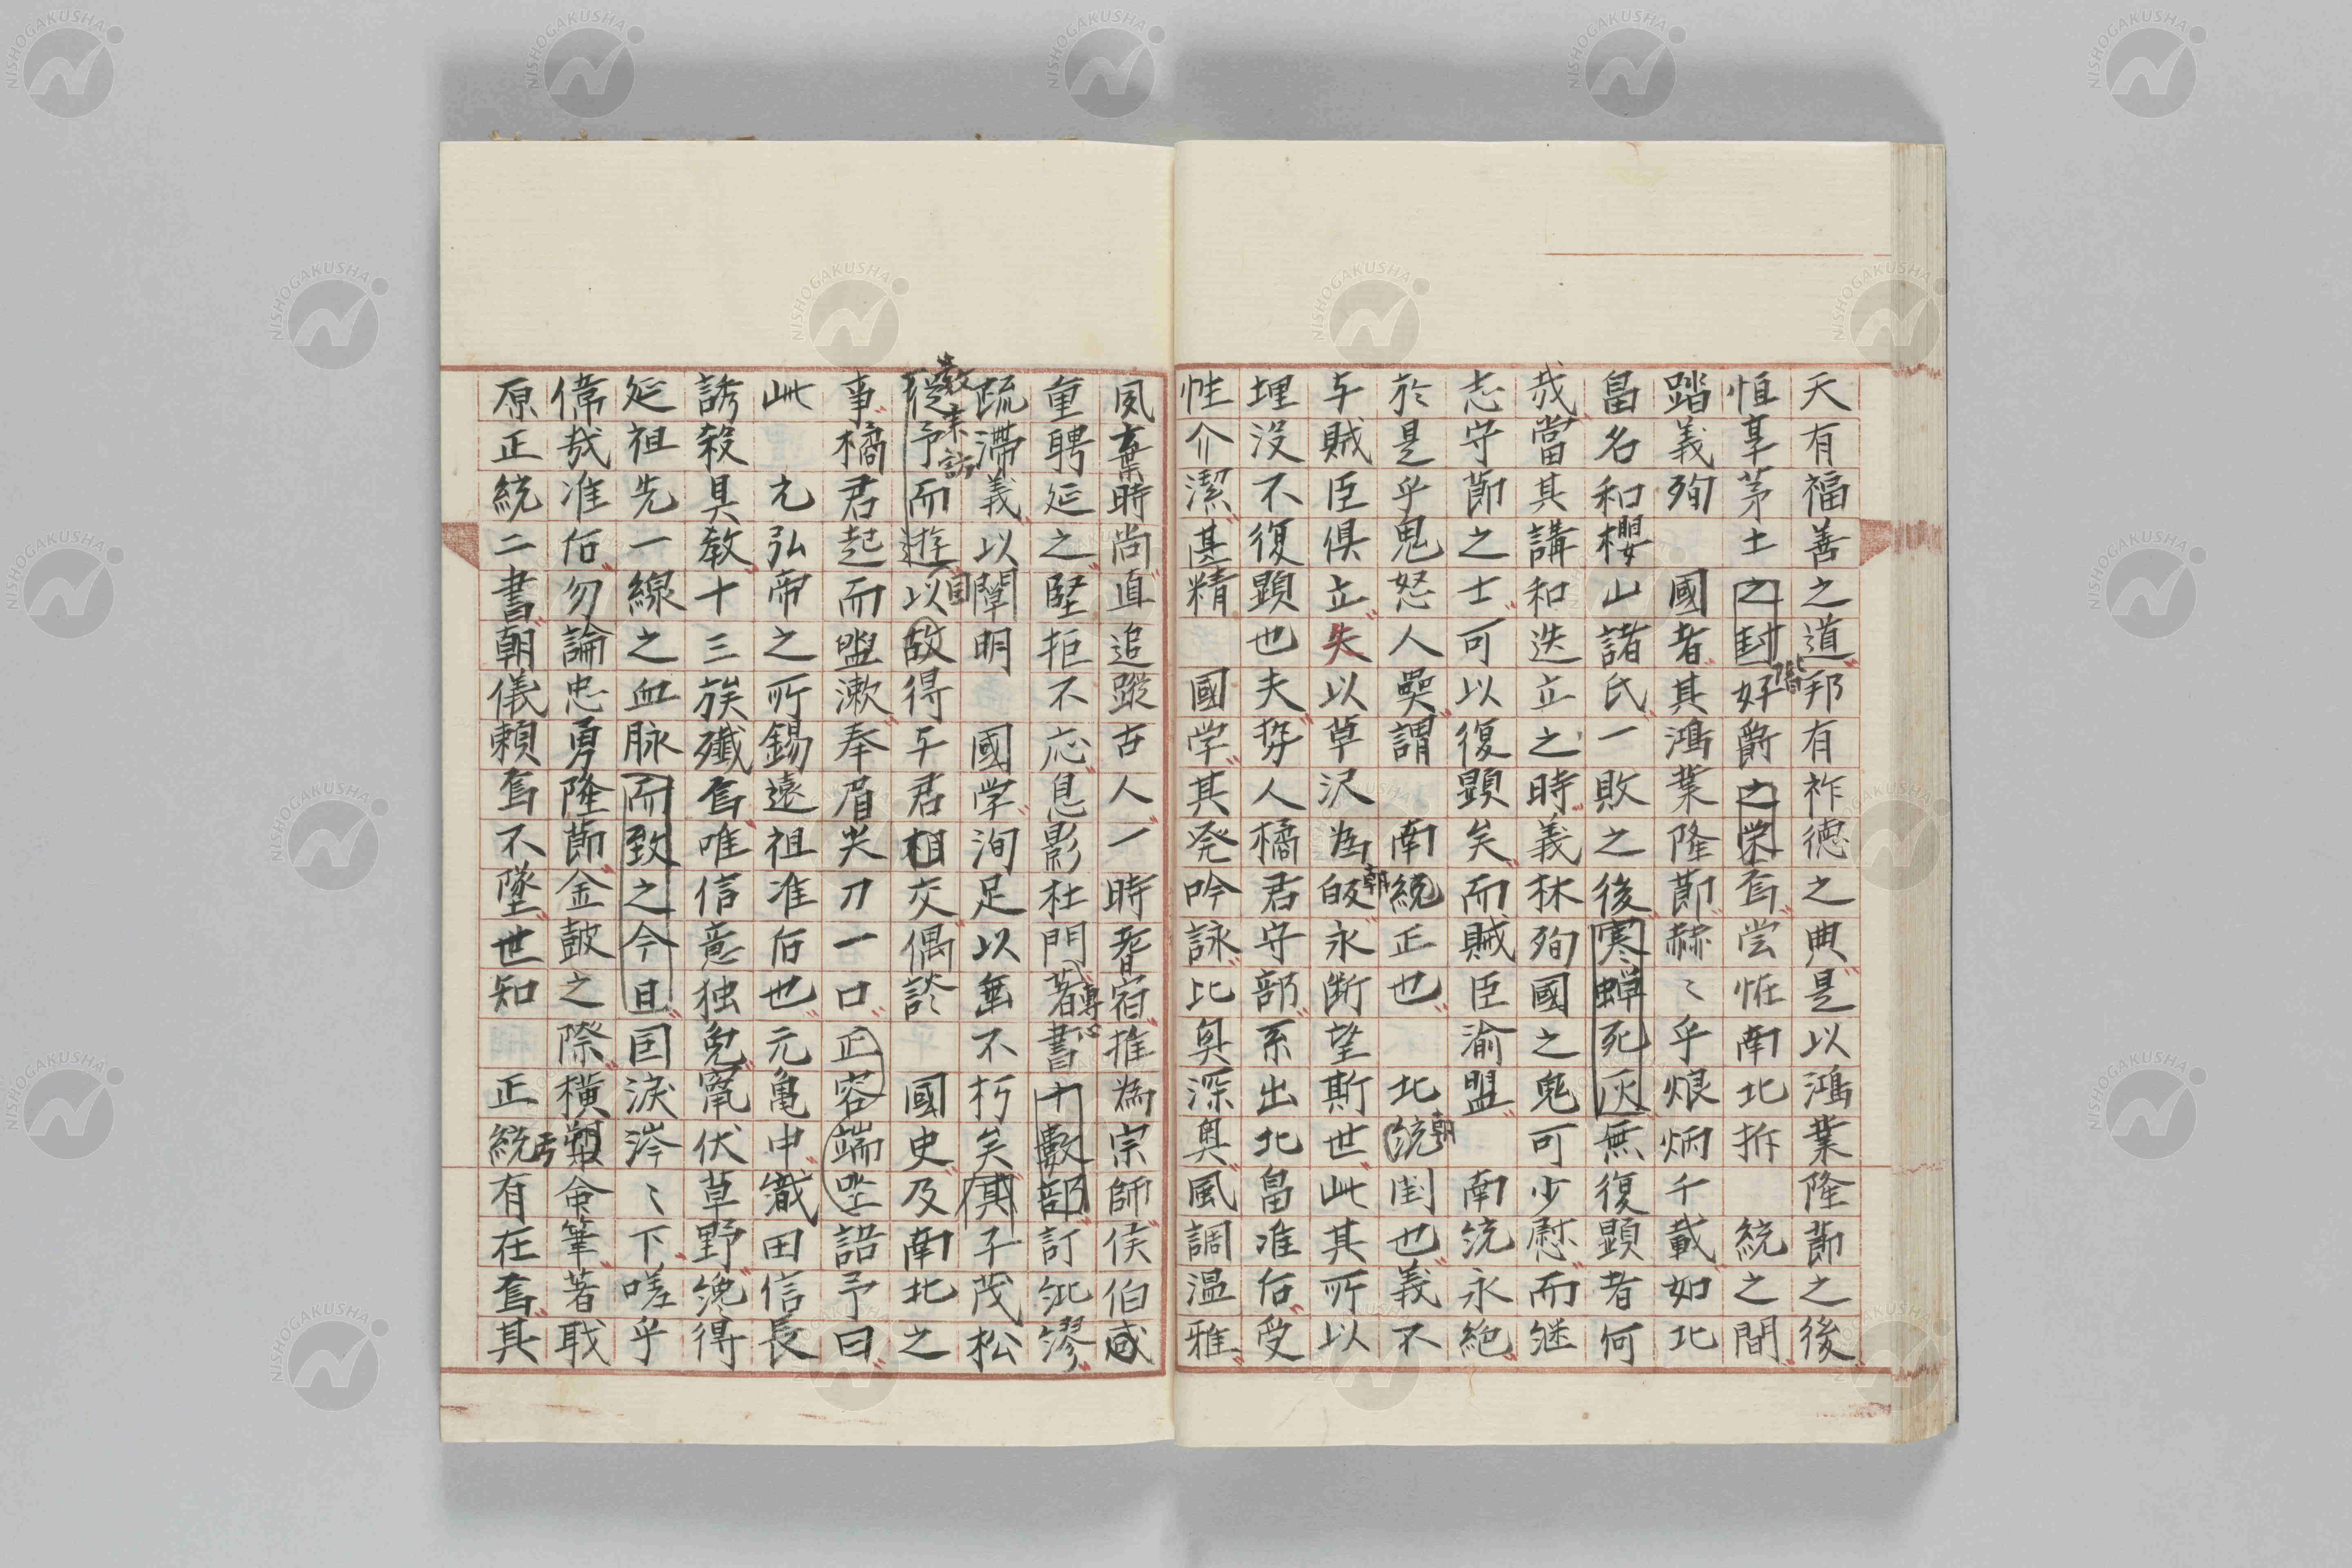 天有福善之道邦有祚徳之典是以鴻業隆節之後
恒享茅土之封好爵之栄焉嘗恠南北拆 統之間
踏義殉 國者其鴻業隆節赫〻乎烺炳千載如北
畠名和櫻山諸氏一敗之後寒蝉死灰無復顕者何
哉當其講和迭立之時義林殉國之鬼可少慰而継
志守節之士可以復顕矣而賊臣渝盟 南统永絶
於是乎鬼怒人奰謂 南統正也 北统閏也義不
与賊臣倶立矢以草沢為皈永断望斯世此其所以
埋没不復顕也夫勢人橘君守部系出北畠准后受
性介潔甚精 國学其発吟詠比興深奥風調温雅
風棄時尚直追蹤古人一時耆宿推為宗師侯伯咸
重聘延之堅拒不応息影杜門著書十數部訂紕謬
疏滞義以闡明 國学洵足以垂不朽矣俱子茂松
従予而遊以故得与君相交偶談 國史及南北之
事橘君起而盥漱奉眉尖刀一口正容端坐語予曰
此 元弘帝之所錫遠祖准后也元亀中織田信長
誘殺具教十三族殲焉唯信意独免竄伏草野纔得
延祖先一線之血脉而致之今日囙涙涔〻下嗟乎
偉哉准后勿論忠勇隆節金鼓之際横槊命筆著职
原正統二書朝儀頼焉不墜世知 正統有在焉其
朝
朝
專心
數来訪
因
NISHOGAKUSHA